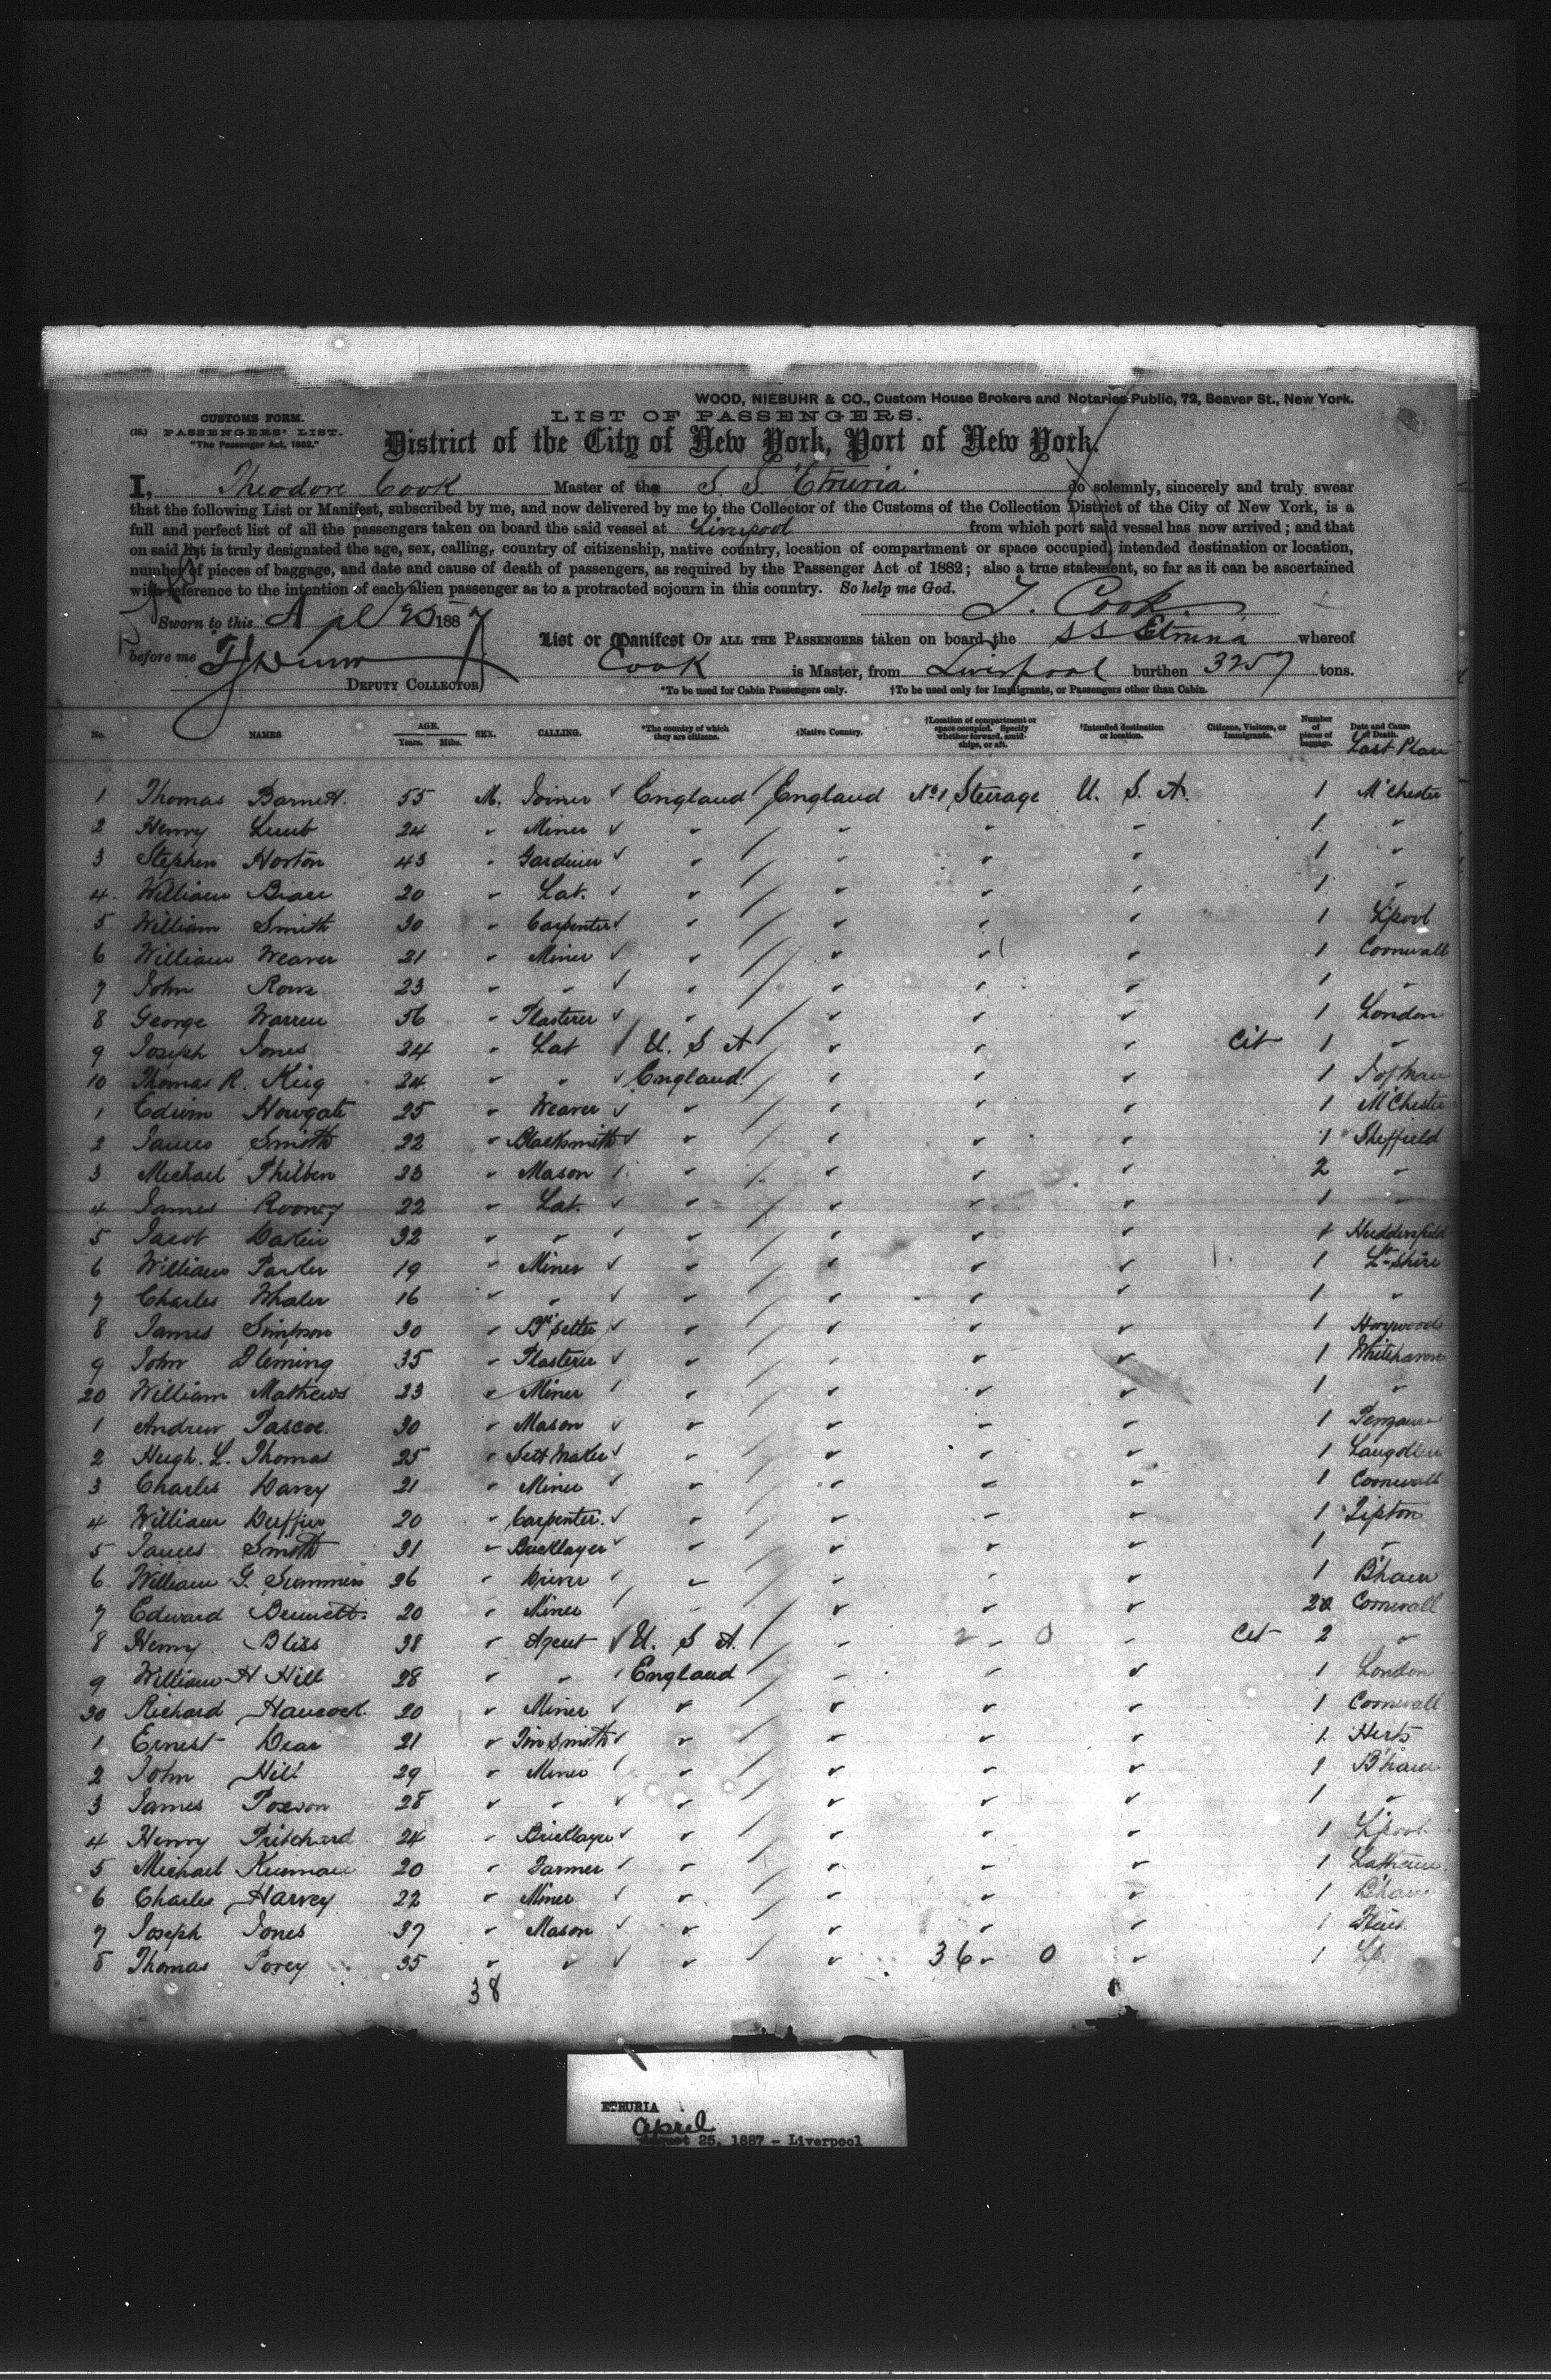 WOOD, NIEBUHR & CO., Custom House Brokers and Notaries Public, 72, Beaver St., New York.
CUSTOMS FORM.
LIST OF PASSENGERS.
PASSENGERS' LIST.
"The Passenger Act, 1882."
District of the City of New York, Port of New York.
I, Theodore Cook Master of the S. S. "Etruria" do solemnly, sincerely and truly swear
that the following List or Manifest, subscribed by me, and now delivered by me to the Collector of the Customs of the Collection District of the City of New York, is a
full and perfect list of all the passengers taken on board the said vessel at Liverpool from which port said vessel has now arrived; and that
on said list is truly designated the age, sex, calling, country of citizenship, native country, location of compartment or space occupied, intended destination or location,
number of pieces of baggage, and date and cause of death of passengers, as required by the Passenger Act of 1882; also a true statement, so far as it can be ascertained
with reference to the intention of each alien passenger as to a protracted sojourn in this country. So help me God.
T. Cook
Sworn to this Apl 25 1887
List or Manifest OF ALL THE PASSENGERS taken on board the SS Etruria whereof
before me
Cook is Master, from Liverpool burthen 3257 tons.
DEPUTY COLLECTOR
*To be used for Cabin Passengers only. †To be used only for Immigrants, or Passengers other than Cabin.
No. NAMES AGE. Years. Mths. SEX. CALLING. *The country of which they are citizens. †Native Country. †Location of compartment or space occupied. Specify whether forward, amidships, or aft. †Intended destination or location. Citizens, Visitors, or Immigrants. Number of pieces of baggage. Date and Cause of Death. Last Place
1 Thomas Barnett. 55 M. Joiner England England No 1 Steerage U. S. A. 1 M'chester
2 Henry 24 " Miner " " " " 1 "
3 Stephen Horton 43 " Gardiner " " " " 1 "
4 William 20 " Lab. " " " " 1 "
5 William Smith 30 " Carpenter " " " " 1 L'pool
6 William Weaver 21 " Miner " " " " 1 Cornwall
7 John Rowe 23 " " " " " " 1 "
8 George Warren 56 " Plasterer " " " " 1 London
9 Joseph Jones 24 " Lab U. S A " " " Cit 1 "
10 Thomas R. King 24 " " England " " " 1 I of Man
1 Edwin Howgate 25 " Weaver " " " " 1 M'Chester
2 James Smith 22 " Blacksmith " " " " 1 Sheffield
3 Michael Philben 23 " Mason " " " " 2 "
4 James Rooney 22 " Lab. " " " " 1 "
5 Jacob 32 " " " " " " 1 Huddersfield
6 William 19 " Miner " " " " 1
7 Charles Whaler 16 " " " " " " 1 "
8 James Simpson 30 " " " " " 1
9 John Fleming 35 " Plasterer " " " " 1 Whitehaven
20 William Mathews 23 " Miner " " " " 1 "
1 Andrew Pascoe. 30 " Mason " " " " 1 Penzance
2 Hugh. L. Thomas 25 " Sett Maker " " " " 1 Langollen
3 Charles Davey 21 " Miner " " " " 1 Cornwall
4 William 20 " Carpenter. " " " " 1 Tipton
5 James Smith 31 " Bricklayer " " " " 1 "
6 William G. Summers 26 " " " " " 1 B'ham
7 Edward Bennett. 20 " Miner " " " " 2 Cornwall
8 Henry Bliss 38 " Agent U. S A. " 2 " 0 " Cit 2 "
9 William H Hill 28 " " England " " " 1 London
30 Richard Hancock. 20 " Miner " " " " 1 Cornwall
1 Ernest Dear 21 " Tin Smith " " " " 1 Herts
2 John Hill 29 " Miner " " " " 1 B'ham
3 James 28 " " " " " " 1 "
4 Henry Pritchard 24 " Bricklayer " " " " 1 L'pool
5 Michael 20 " Farmer " " " " 1
6 Charles Harvey 22 " Miner " " " " 1 B'ham
7 Joseph Jones 37 " Mason " " " " 1
8 Thomas 35 " " " " 36 " 0 " 1
38
ETRURIA
April
25, 1887 - Liverpool